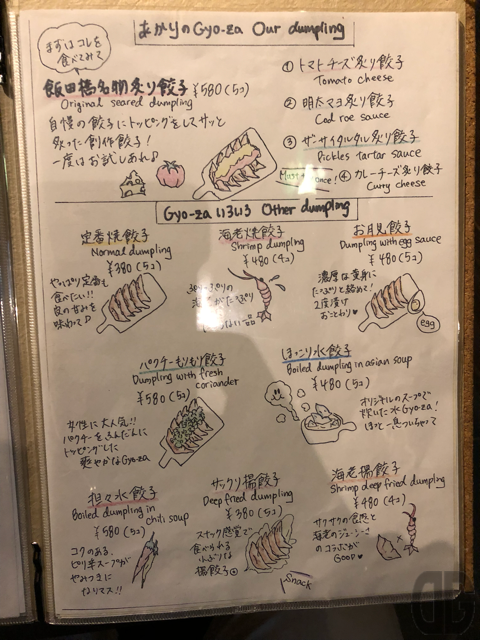 あかりのGyo-za Our dumpling
まずはコレを
食べてみて
飯田橋名物炙り餃子 ¥580(5コ)
Original seared dumpling
自慢の餃子にトッピングをしてサッと
炙った創作餃子!
一度はお試しあれ♪
① トマトチーズ炙り餃子
Tomato cheese
② 明太マヨ炙り餃子
Cod roe sauce
③ ザーサイタルタル炙り餃子
Pickles tartar sauce
④ カレーチーズ炙り餃子
Curry cheese
Gyo-za いろいろ Other dumpling
定番焼餃子
Normal dumpling
¥380(5コ)
やっぱり定番も
食べたい!!
皮の甘みを
味わって♪
海老焼餃子
Shrimp dumpling
¥480(4コ)
お月見餃子
Dumpling with egg sauce
¥480(5コ)
濃厚な黄身に
たっぷりと絡めて!
2度漬け
おことわり♥
egg
パクチーもりもり餃子
Dumpling with fresh
coriander
¥580(5コ)
女性に大人気!!
パクチーをふんだんに
トッピングした
爽やかなGyo-za
ほっこり水餃子
Boiled dumpling in asian soup
¥480(5コ)
オリジナルのスープで
炊いた水Gyo-za!
ほっと一息ついちゃって
担々水餃子
Boiled dumpling in
chili soup
¥580(5コ)
コクのある、
ピリ辛スープが
やみつきに
なりマス!!
サックリ揚餃子
Deep fried dumpling
¥580(5コ)
スナック感覚で
食べられる
揚餃子
Snack
海老揚餃子
Shrimp deep fried dumpling
¥480(4コ)
サクサクの食感と
海老のジューシーさ
のコラボが
GOOD♥